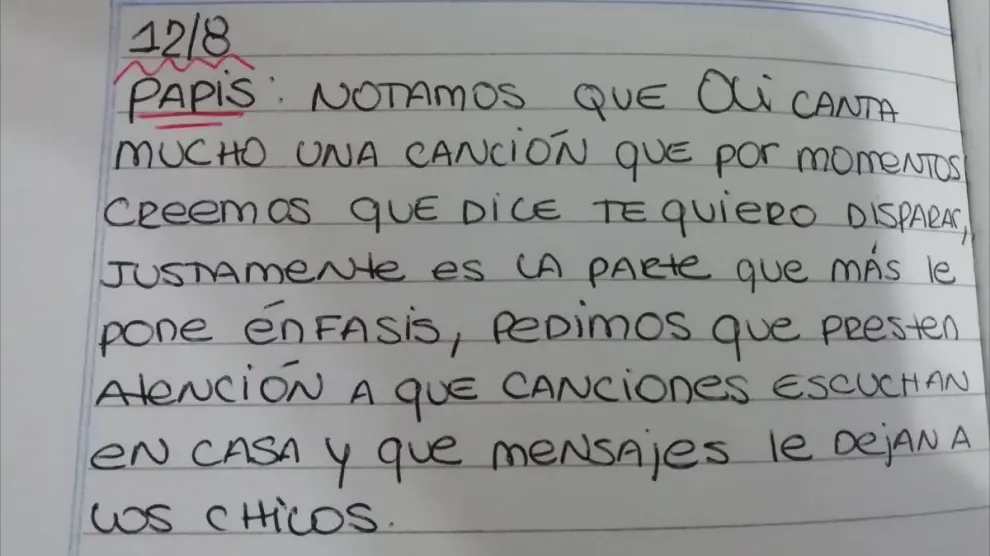 12/8
PAPIS: NOTAMOS QUE Oli CANTA
MUCHO UNA CANCIÓN QUE POR MOMENTOS
CREEMOS QUE DICE TE QUIERO DISPARAR,
JUSTAMENTE ES LA PARTE QUE MÁS LE
PONE ÉNFASIS, PEDIMOS QUE PRESTEN
ATENCIÓN A QUE CANCIONES ESCUCHAN
EN CASA Y QUE MENSAJES LE DEJAN A
LOS CHICOS.